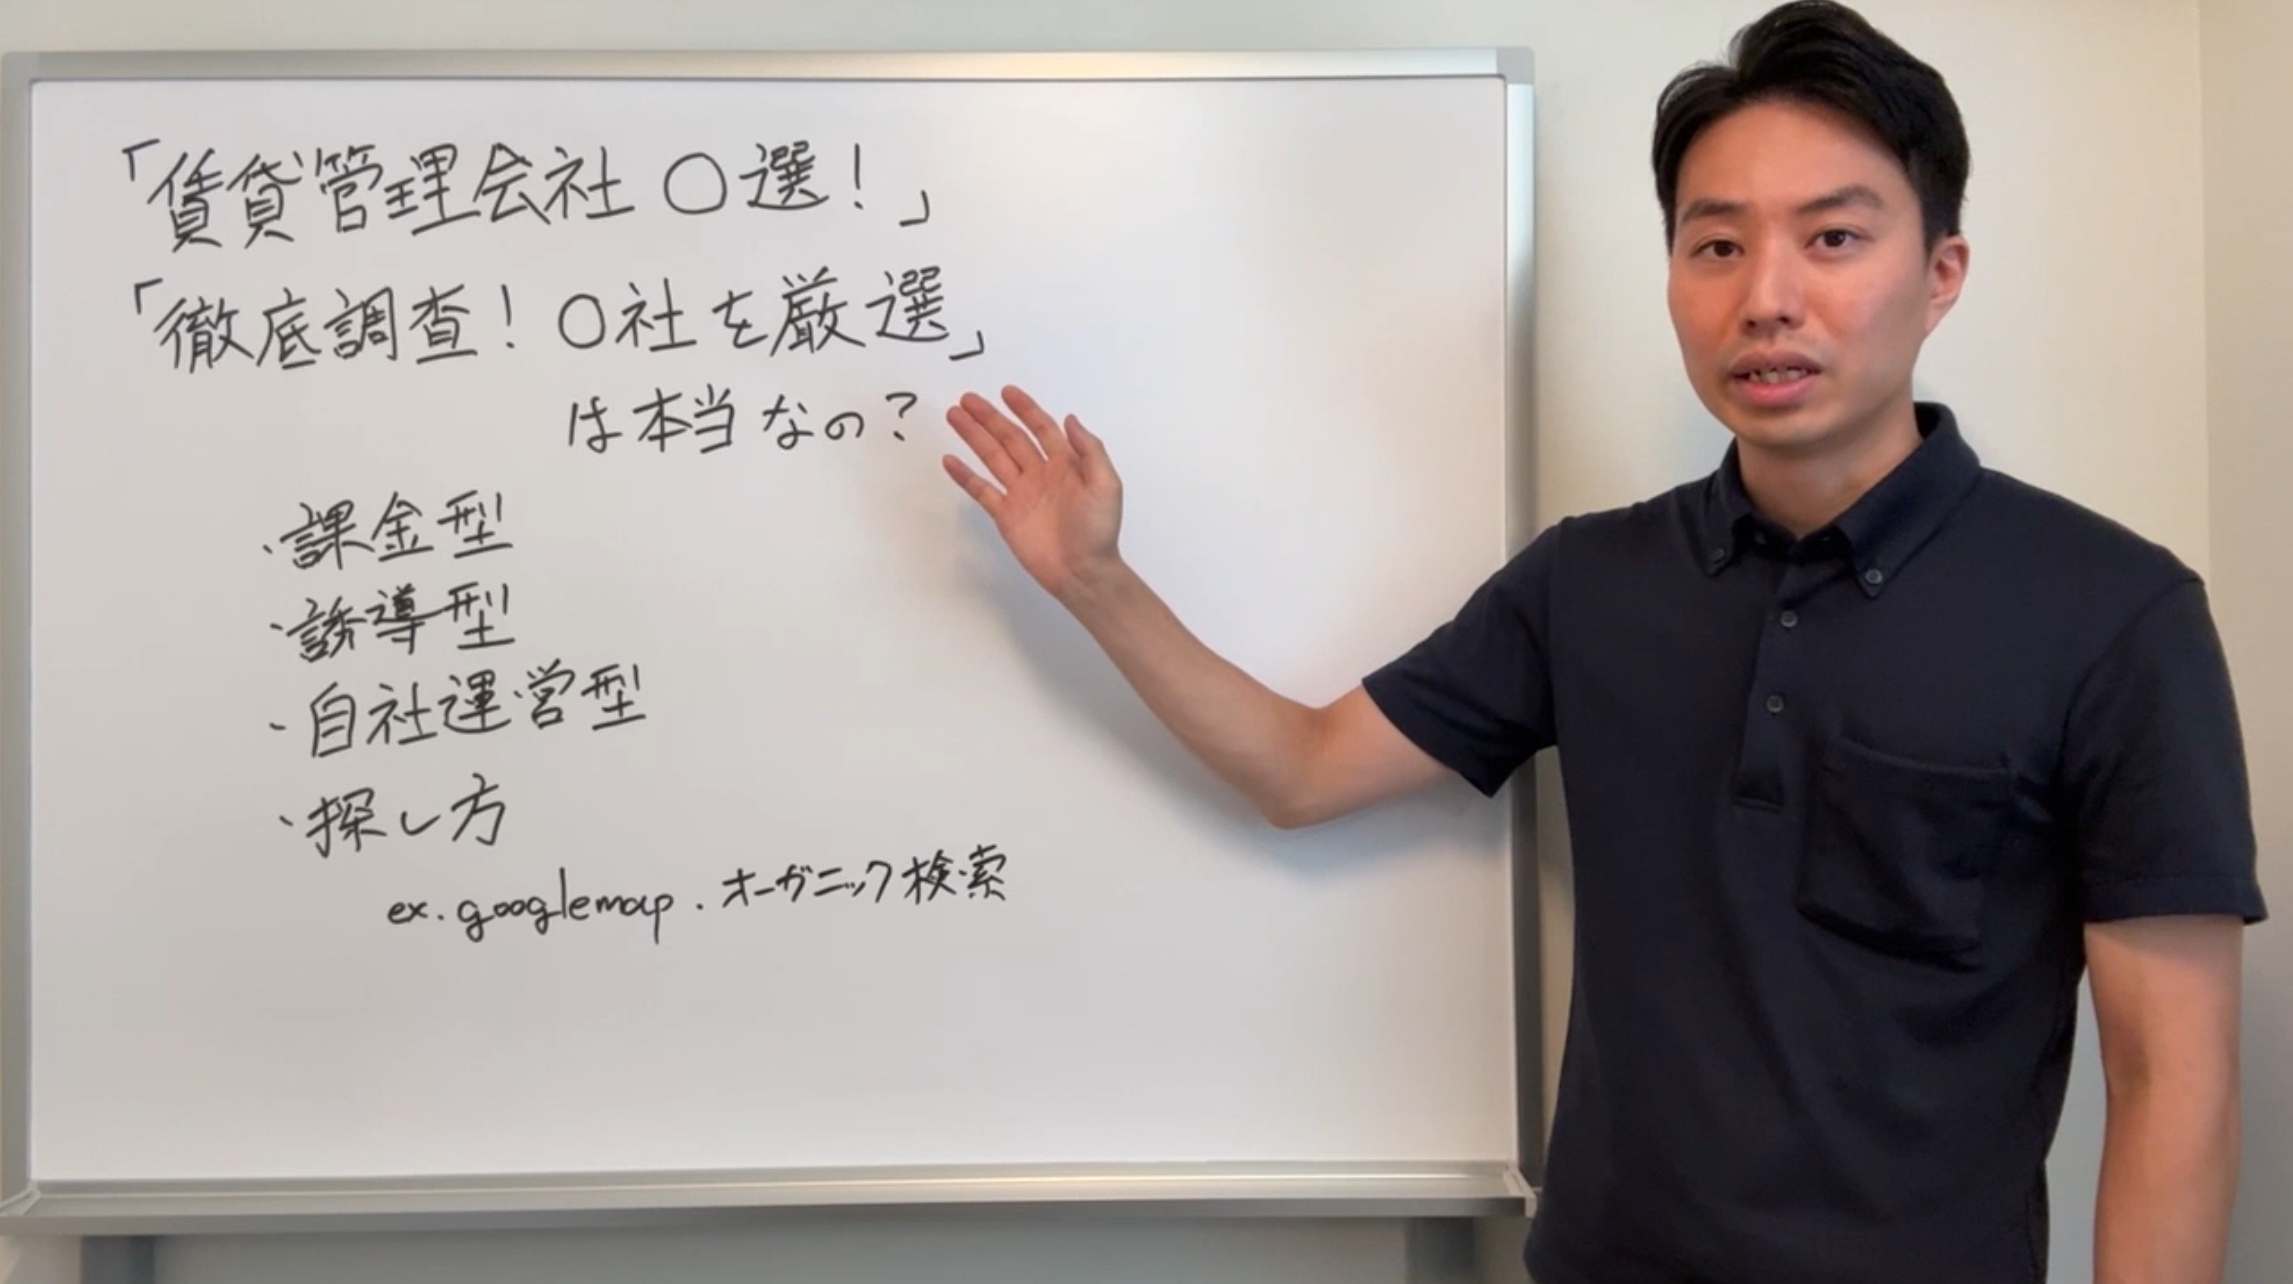 「賃貸管理会社〇選！」
「徹底調査！〇社を厳選」
は本当なの？
・課金型
・誘導型
・自社運営型
・探し方
ex. googlemap. オーガニック検索